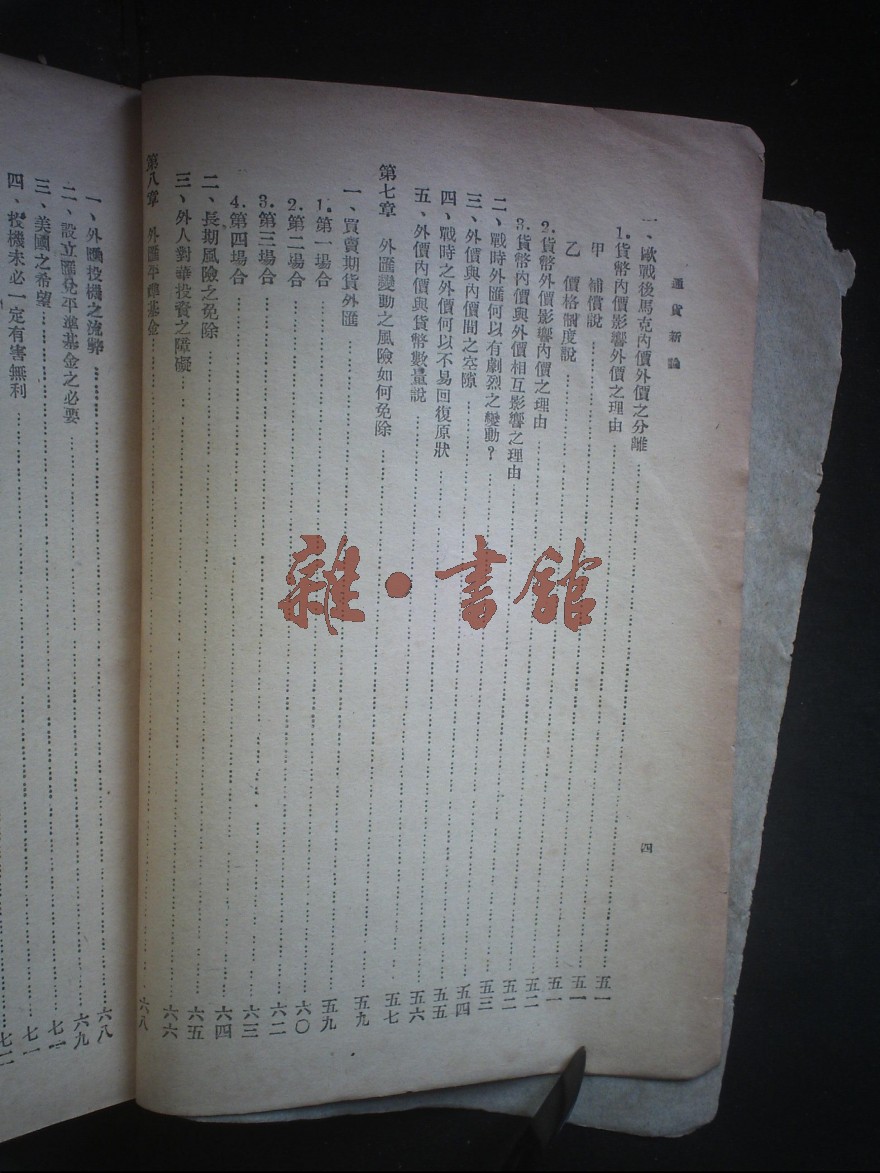 通貨新論
四
一、歐戰後馬克內價外價之分離 五一
1.貨幣內價影響外價之理由 五一
甲 補償說 五一
乙 價格制度說 五二
2.貨幣外價影響內價之理由 五二
3.貨幣內價與外價相互影響之理由 五三
二、戰時外匯何以有劇烈之變動? 五四
三、外價與內價間之空隙 五五
四、戰時之外價何以不易回復原狀 五六
五、外價內價與貨幣數量說 五七
第七章 外匯變動之風險如何免除 五九
一、買賣期貨外匯 五九
1.第一場合 六〇
2.第二場合 六二
3.第三場合 六三
4.第四場合 六四
二、長期風險之免除 六五
三、外人對華投資之障礙 六六
第八章 外匯平準基金 六八
一、外匯投機之流弊 六八
二、設立匯兌平準基金之必要 六九
三、美國之希望 七一
四、投機未必一定有害無利 七一
七二
雜·書館